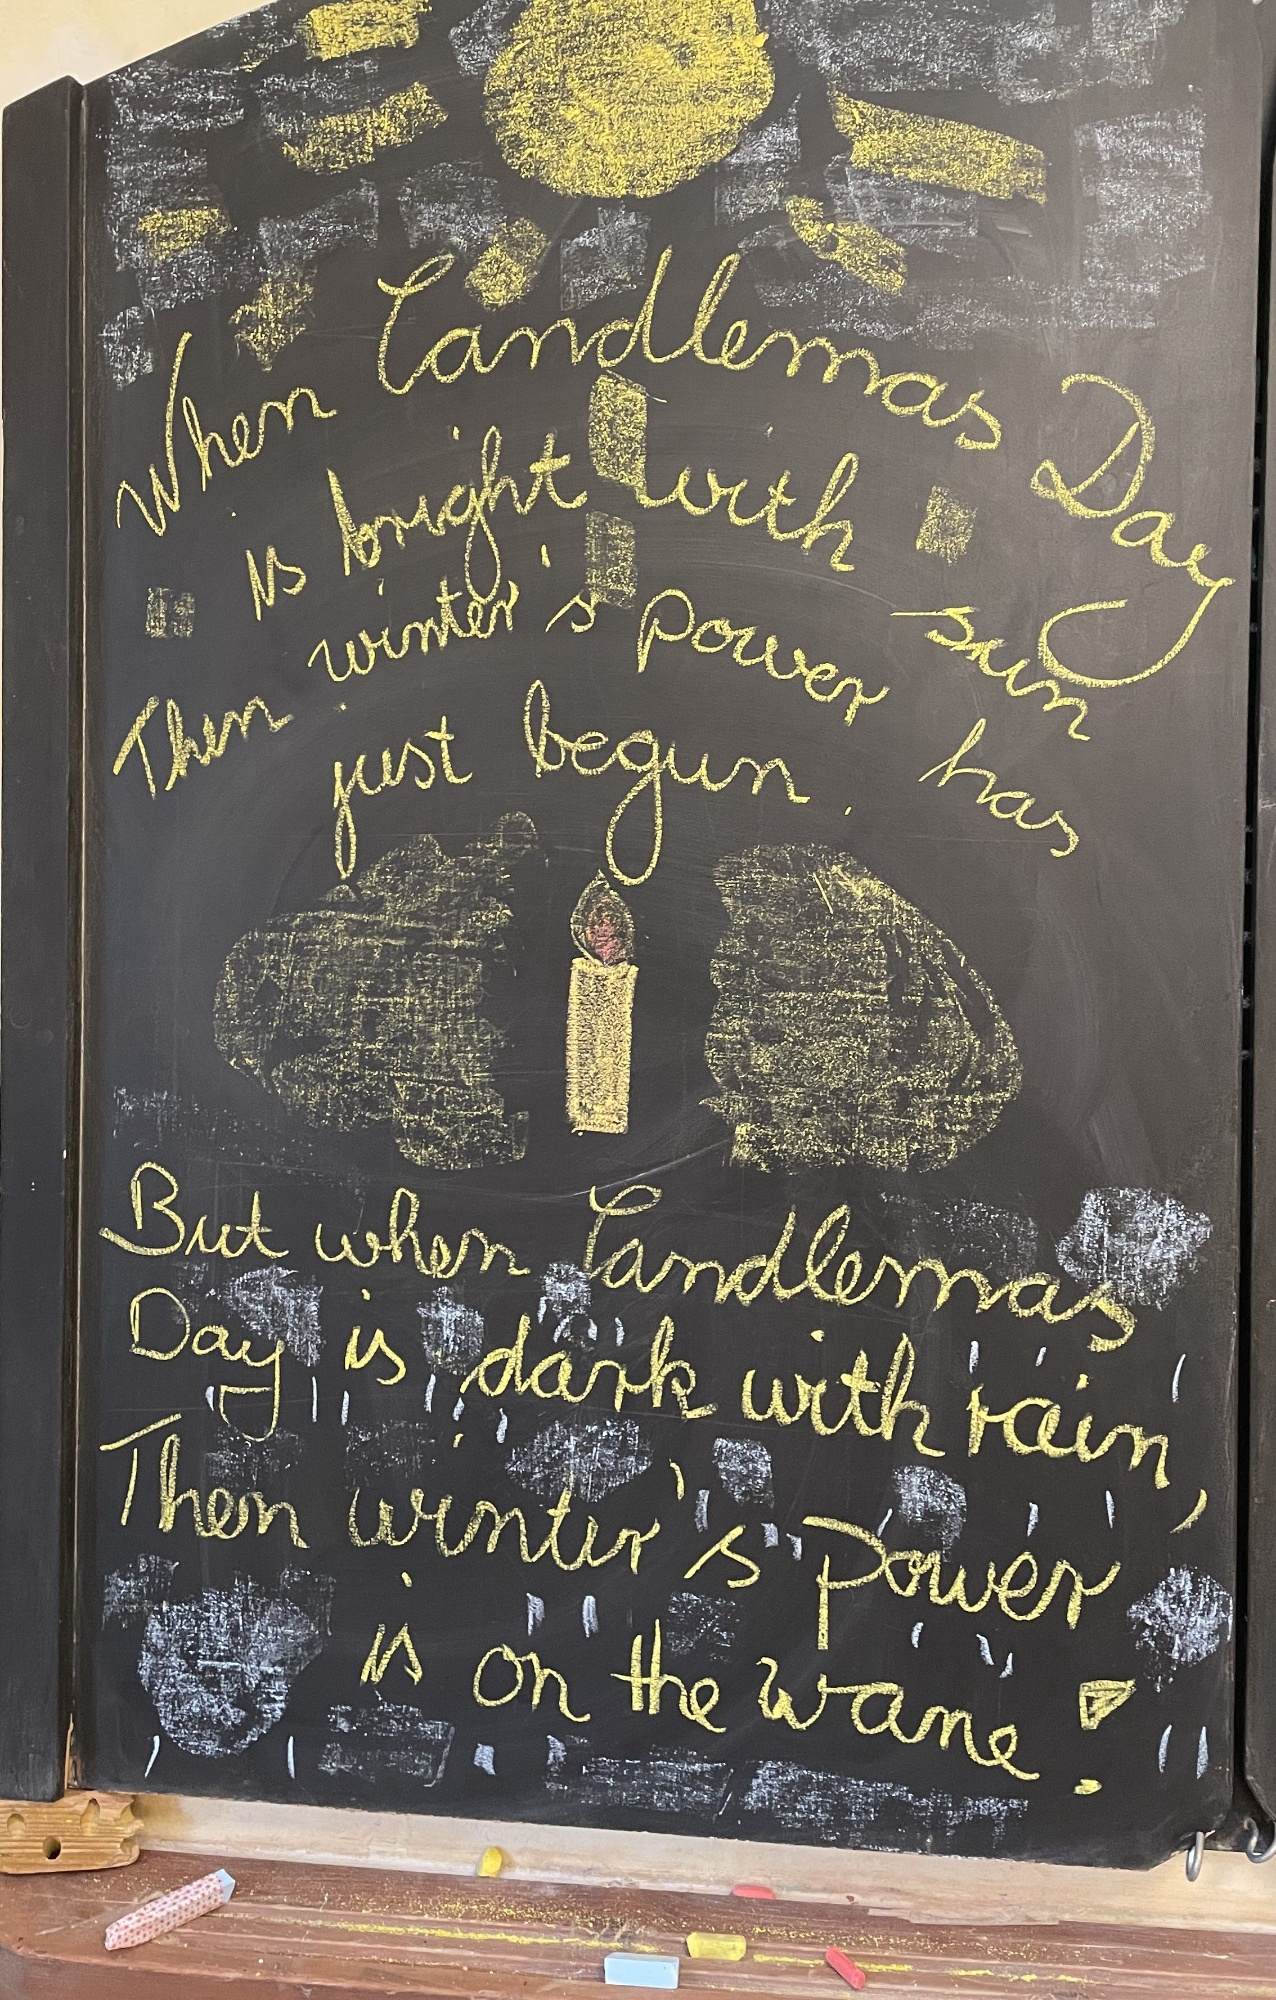 When Candlemas Day
is bright with sun
Then winter's power has
just begun.
But when Candlemas
Day is dark with rain,
Then winter's power
is on the wane!